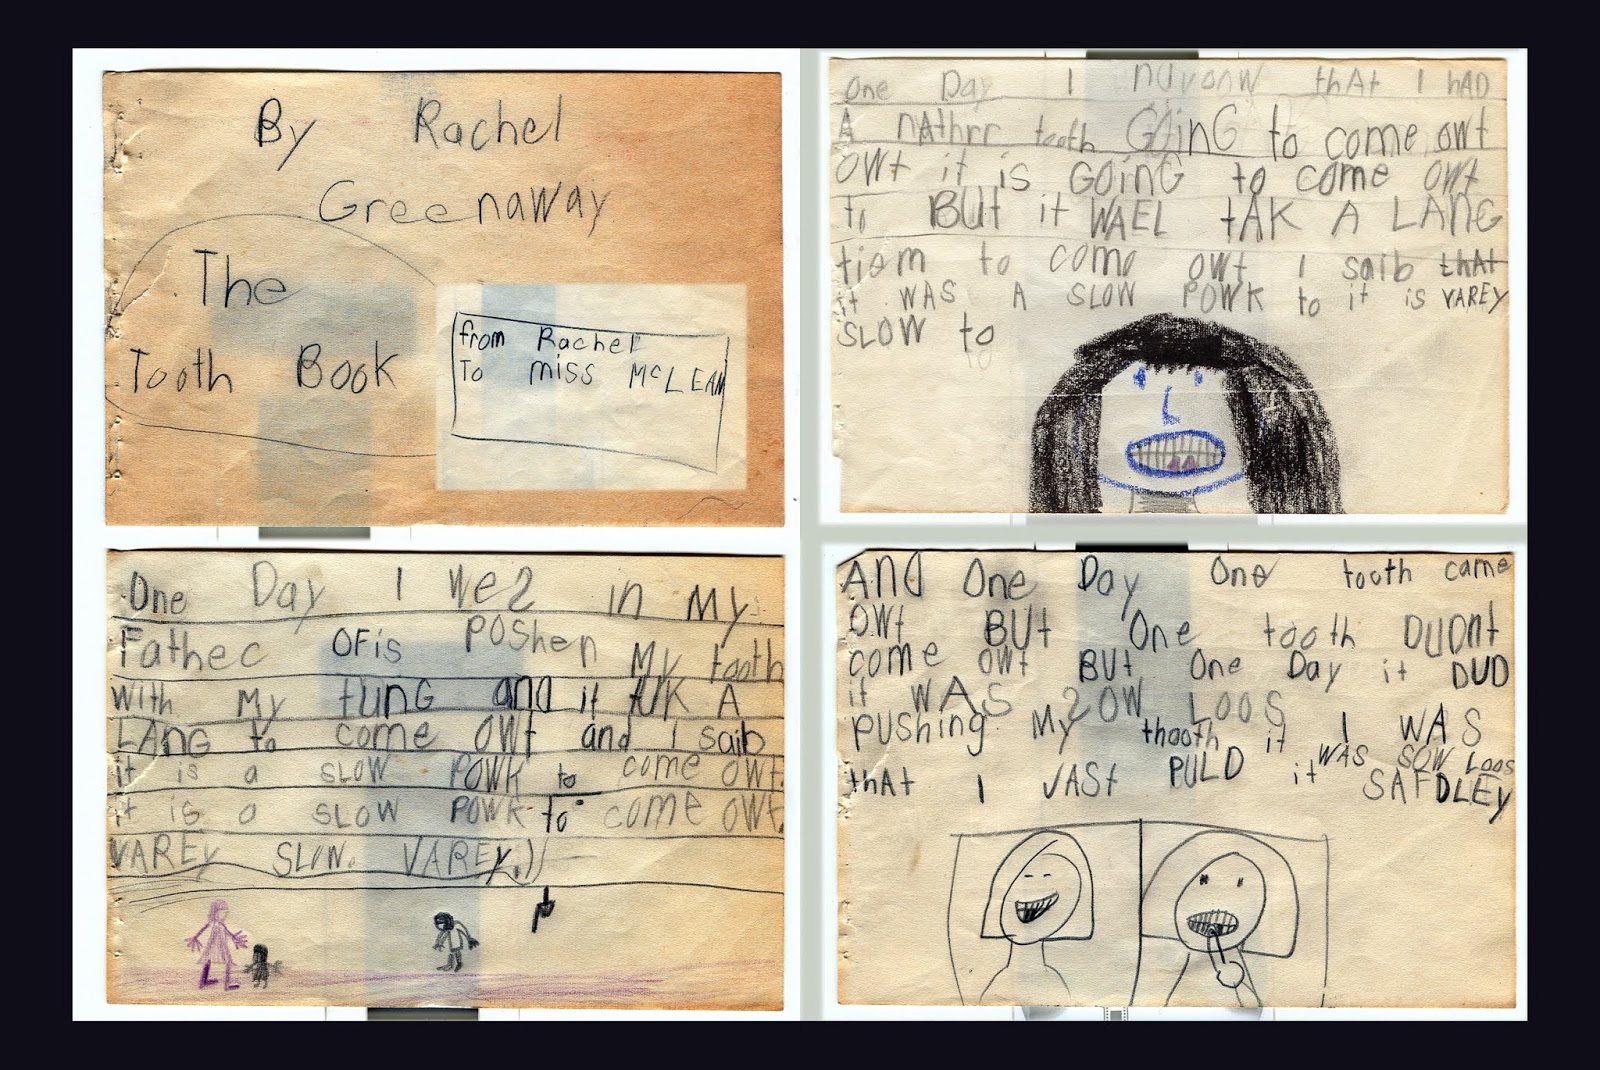 By Rachel
Greenaway
The
Tooth Book
from Rachel
To miss McLEAN
One Day I that I hAD
A nAthrr tooth GOinG to come owt
OWt it is GOinG to come owt
to BUt it WAEL tAK A LANG
tiom to come owt I saib thAt
it WAS A SLOW POWK to it is VAREY
SLOW to
One Day I in My
Father OFis POShen My tooth
With My tUNG and it tUK A
LANG to come OWt and I saib
it is a SLOW POWK to come owt.
it is a SLOW POWK to come owt.
VAREY SLOW. VAREY.
AND One Day One tooth came
OWt BUt One tooth DUDnt
come owt BUt One Day it DUD
it WAS SOW LOOS
PUSHING My thooth it I WAS
WAS SOW LOOS
thAt I JASt PULD it SAFDLEy